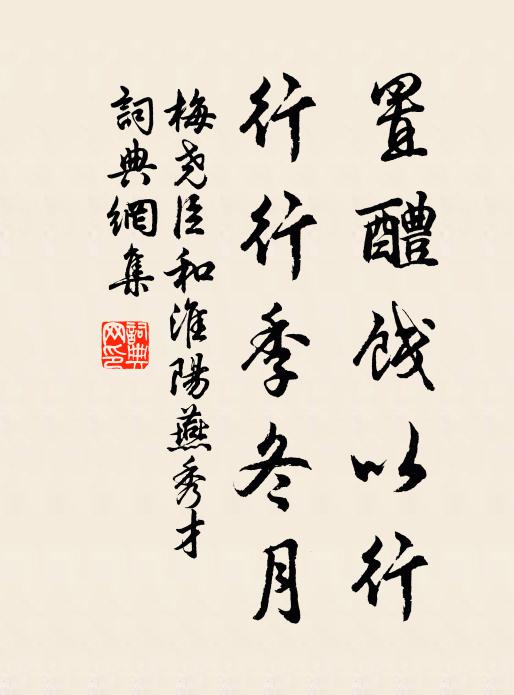 置醴餞以行
行行季冬月
梅尧臣和淮陽燕秀才
詞典網集
詞典网印